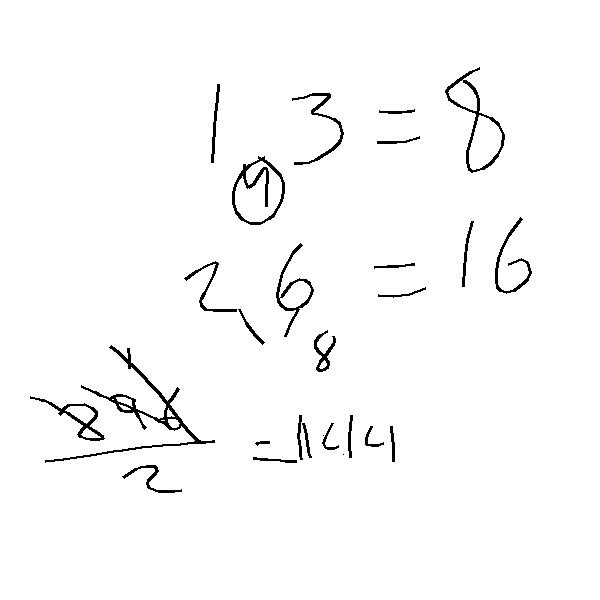 1 3 = 8
4
2, 6, = 16
8
896
/2 = 144